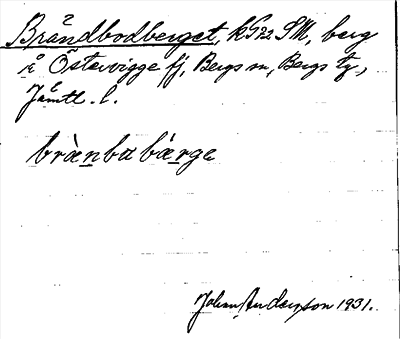 Bråndbodberget, k 572 SM, berg
i Östervigge fj, Bergs sn, Bergs tg.,
Jämtl. l.
bràn̲ba bár̲ge
Johan Anderson 1931.